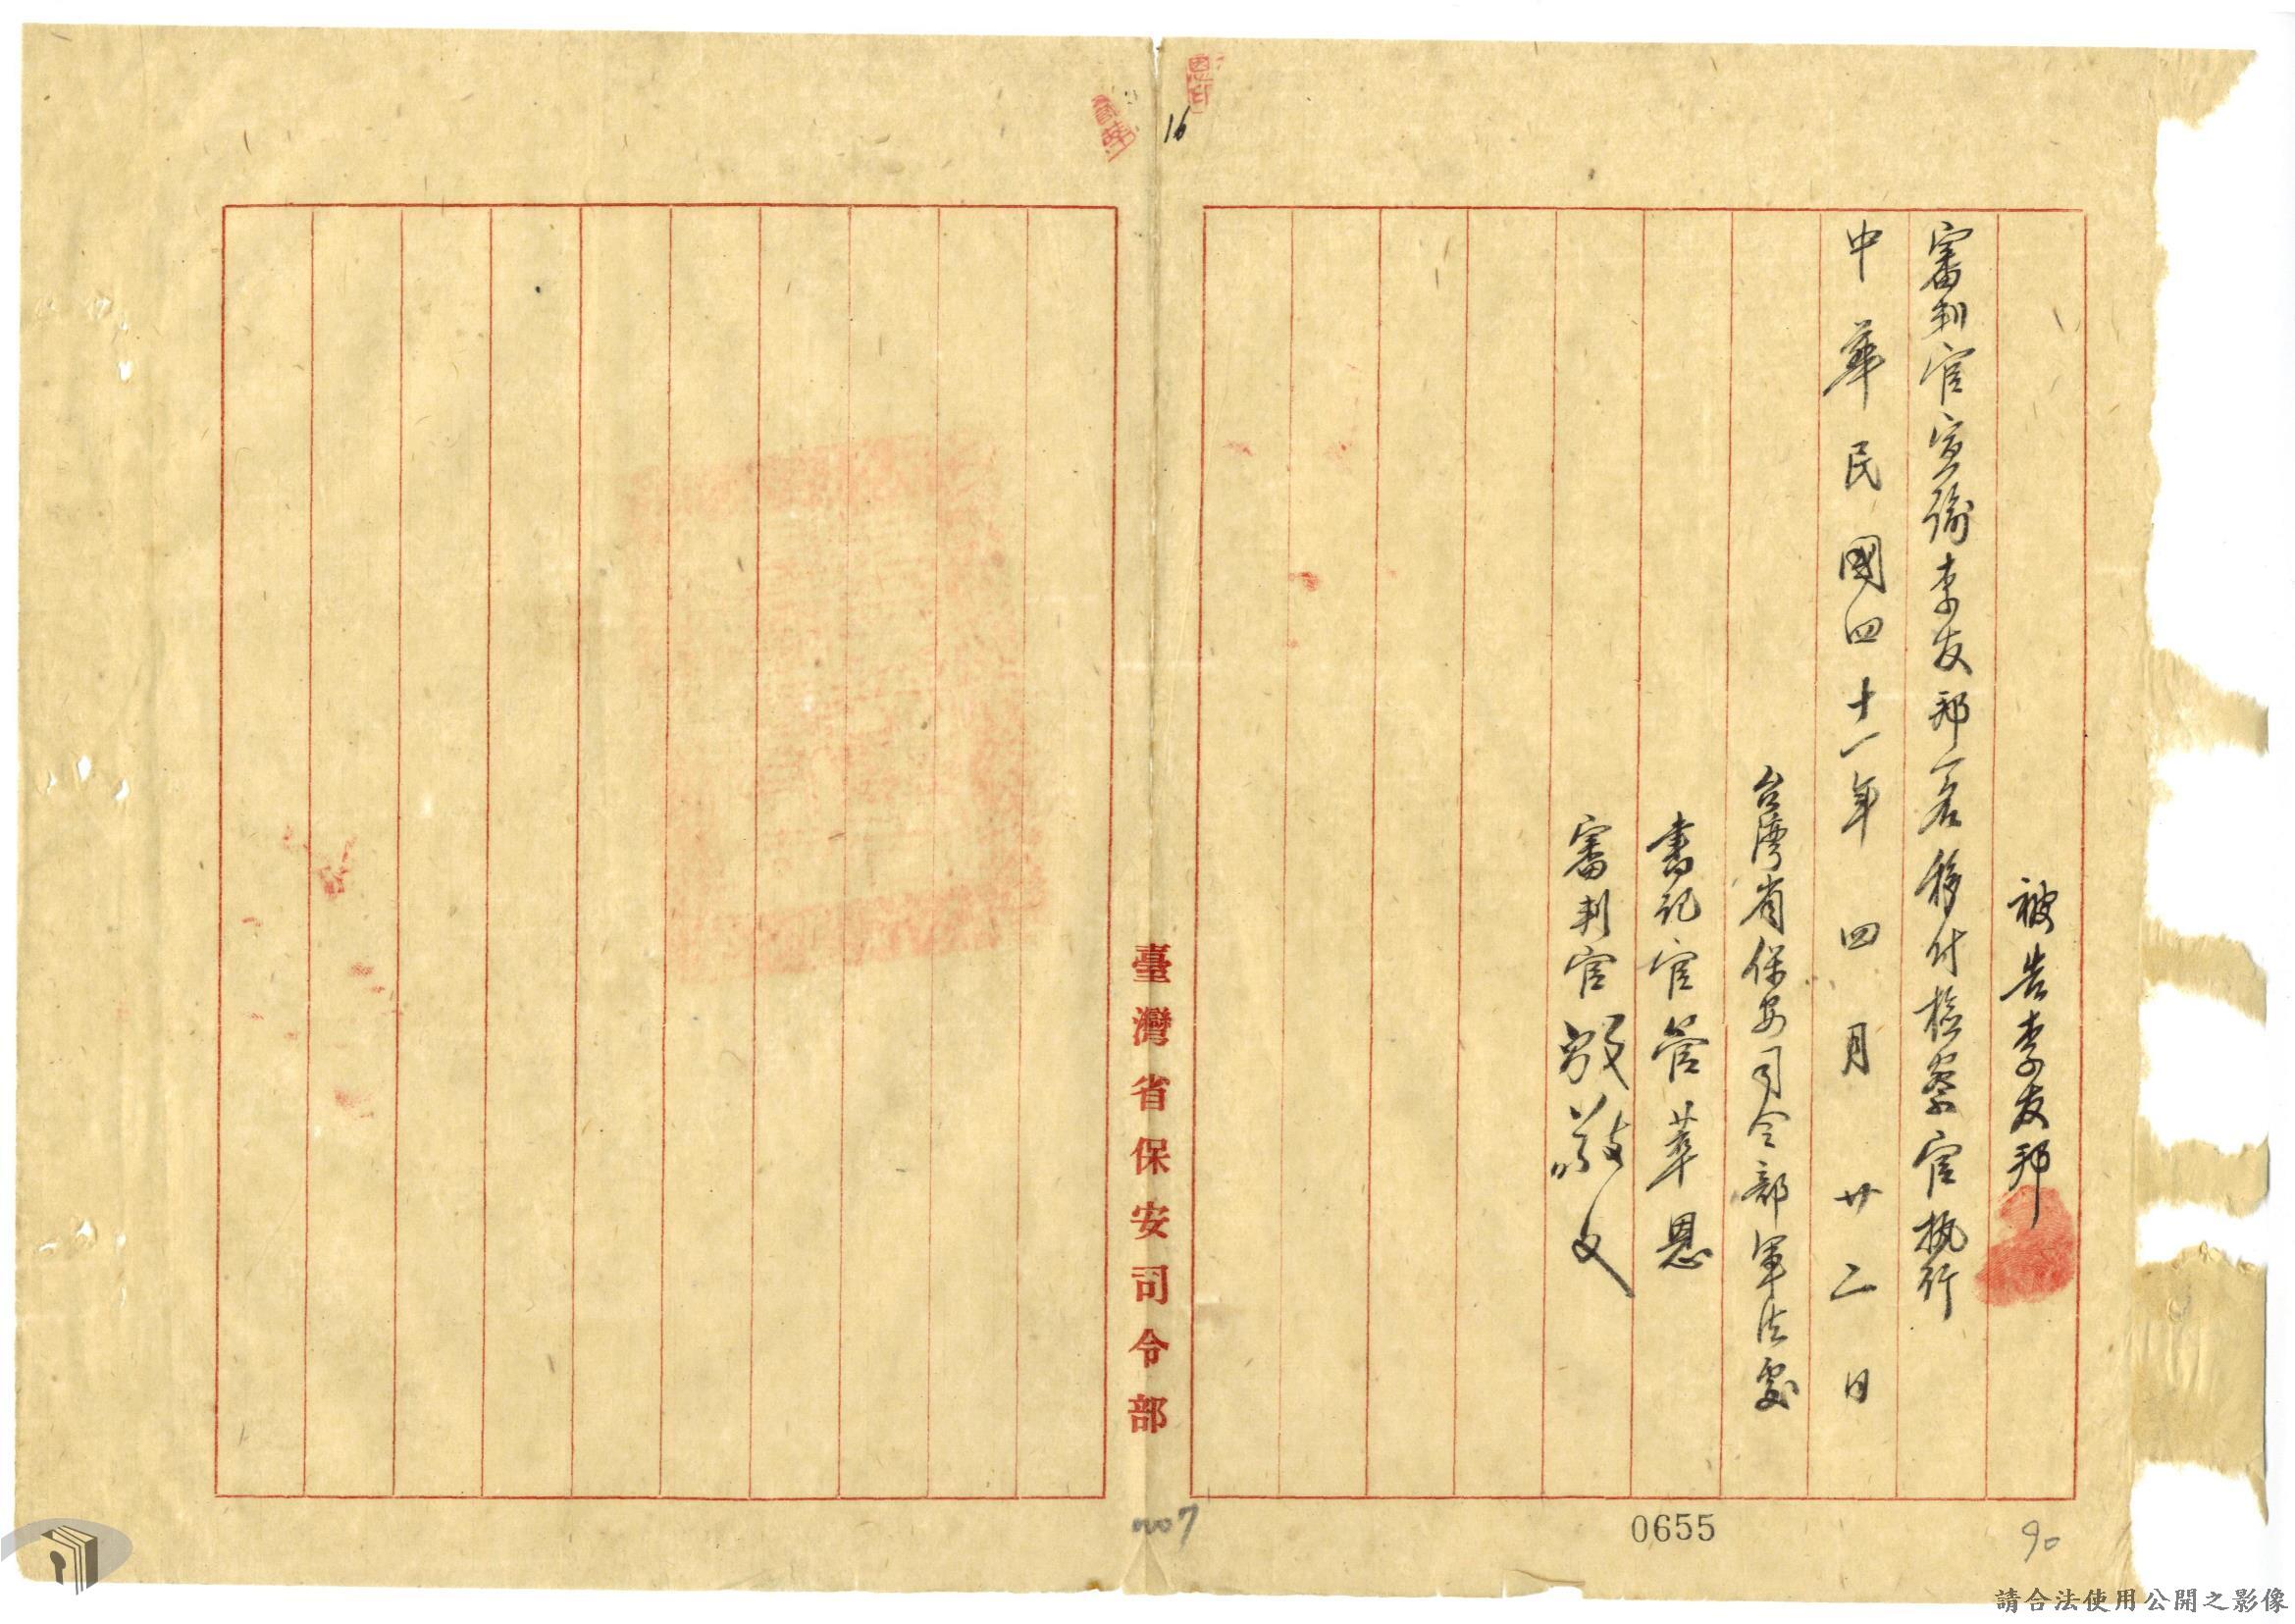 16
被告李友邦
審判官宣諭李友邦一名移付檢察官執行
中華民國四十一年四月廿二日
台湾省保安司令部軍法處
書記官管華恩
審判官殷敬文
臺灣省保安司令部
007
0655
90
請合法使用公開之影像